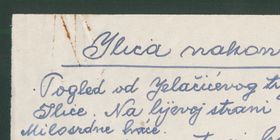 Ilica nakon
Pogled od Jelačićevog t
Ilice. Na lijevoj strani
Milosrdne braće.